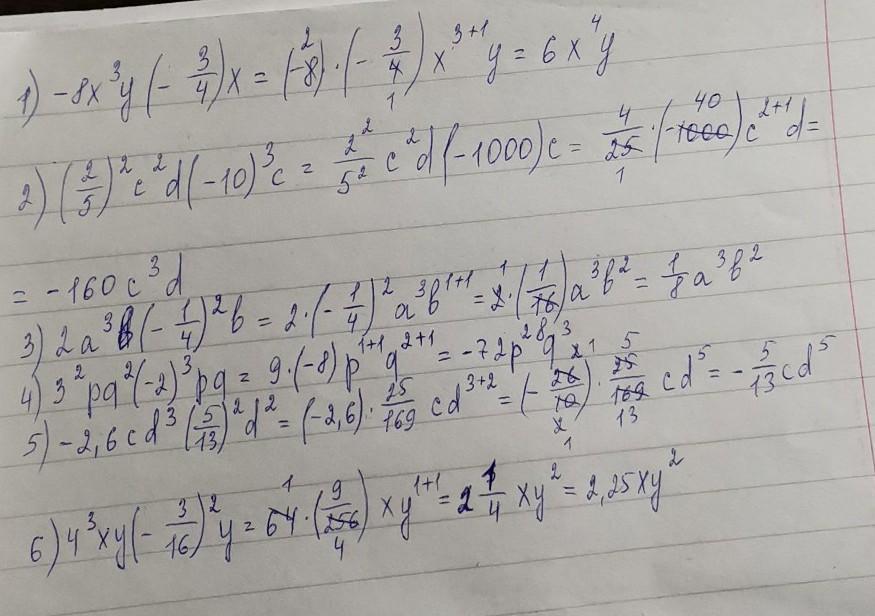 1) -8x³y(-3/4)x = (-8)·(-3/4)x³⁺¹y = 6x⁴y
2) (2/5)²c²d(-10)³c = 2²/5² c²d(-1000)c = 4/25·(-1000)c²⁺¹d =
= -160c³d
3) 2a³b(-1/4)²b = 2·(-1/4)²a³b¹⁺¹ = 2·(1/16)a³b² = 1/8 a³b²
4) 3²pq²(-2)³pq = 9·(-8)p¹⁺¹q²⁺¹ = -72p²q³
5) -2,6cd³(5/13)²d² = (-2,6)·25/169 cd³⁺² = (-26/10)·25/169 cd⁵ = -5/13 cd⁵
6) 4³xy(-3/16)²y = 64·(9/256)xy¹⁺¹ = 2 1/4 xy² = 2,25xy²